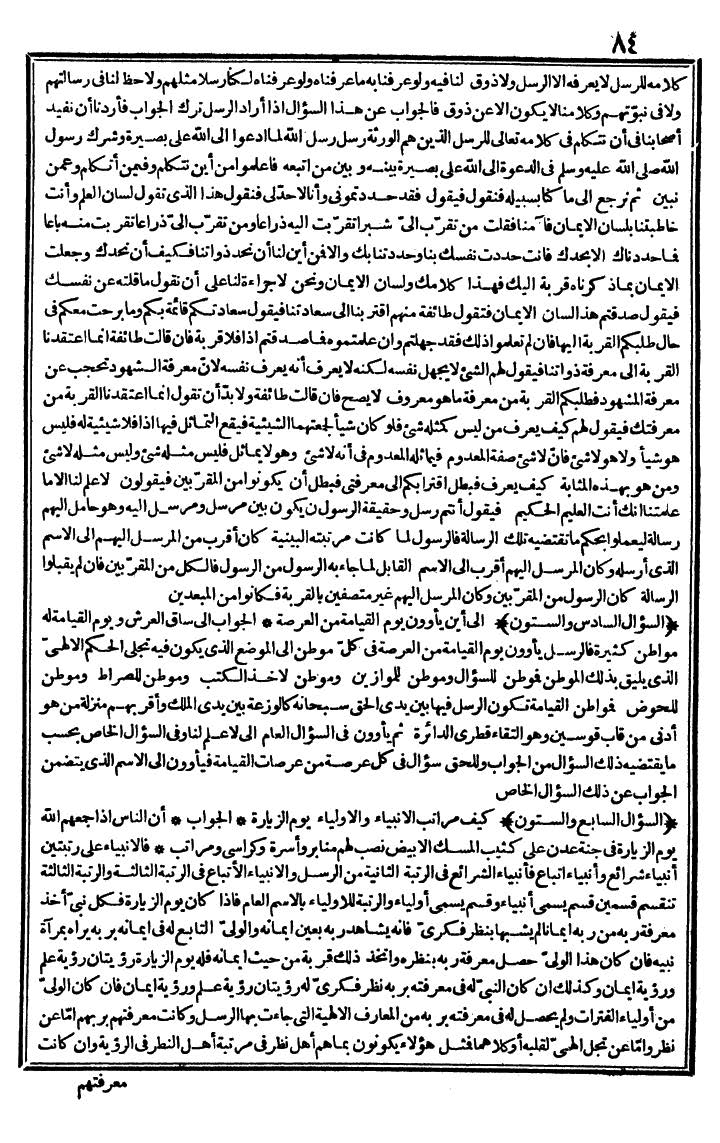 ٨٤
كلامه للرسل لا يعرفه الا الرسل ولا ذوق لنا فيه ولو عرفنا به ما عرفناه ولو عرفناه لكنا رسلا مثلهم ولا حظ لنا فى رسالتهم
ولا فى نبوتهم وكلامنا لا يكون الا عن ذوق فالجواب عن هذا السؤال اذا أراد الرسل ترك الجواب فأردنا أن نفيد
أصحابنا فى أن نتكلم فى كلامه تعالى للرسل الذين هم الورثة رسل رسل الله لما ادعوا الى الله على بصيرة وشرك رسول
الله صلى الله عليه وسلم فى الدعوة الى الله على بصيرة بينه و بين من اتبعه فاعلموا من أين نتكلم وفيمن أتكلم وعمن
نبين ثم نرجع الى ما كنا بسبيله فنقول فيقول فقد حددتمونى وأنا لا حد لى فنقول هذا الذى تقول لسان العلم وأنت
خاطبتنا بلسان الايمان فآمنا فقلت من تقرب الىّ شبرا تقربت اليه ذراعا ومن تقرب الىّ ذراعا تقربت منه باعا
فما حددناك الا بحدك فانت حددت نفسك بنا وحددتنا بك والا فمن أين لنا أن نحد ذواتنا فكيف أن نحدك وجعلت
الايمان بما ذكرناه قربة اليك فهذا كلامك ولسان الايمان ونحن لا جراءة لنا على أن نقول ما قلته عن نفسك
فيقول صدقتم هذا لسان الايمان فتقول طائفة منهم اقتربنا الى سعادتنا فيقول سعادتكم قائمة بكم وما برحت معكم فى
حال طلبكم القربة اليها فان لم تعلموا ذلك فقد جهلتم وان علمتموه فما صدقتم اذا فلا قربة فان قالت طائفة انما اعتقدنا
القربة الى معرفة ذواتنا فيقول لهم الشئ لا يجهل نفسه لكنه لا يعرف أنه يعرف نفسه لانّ معرفة الشهود تحجب عن
معرفة المشهود فطلبكم القربة من معرفة ما هو معروف لا يصح فان قالت طائفة ولا بدّ أن تقول انما اعتقدنا القربة من
معرفتك فيقول لهم كيف يعرف من ليس كمثله شئ فلو كان شيأ لجمعتهما الشيئية فيقع التماثل فيها اذا فلا شيئية له فليس
هو شيأ ولا هو لا شئ فانّ لا شئ صفة المعدوم فيماثله المعدوم فى أنه لا شئ وهو لا يماثل فليس مثله شئ وليس مثله لا شئ
ومن هو بهذه المثابة كيف يعرف فبطل اقترابكم الى معرفتى فبطل أن يكونوا من المقربين فيقولون لا علم لنا الا ما
علمتنا انك أنت العليم الحكيم فيقول أنتم رسل وحقيقة الرسول أن يكون بين مرسل ومرسل اليه وهو حامل اليهم
رسالة ليعملوا بحكم ما تقتضيه تلك الرسالة فالرسول لما كانت مرتبته البينية كان أقرب من المرسل اليهم الى الاسم
الذى أرسله وكان المرسل اليهم أقرب الى الاسم القابل لما جاء به الرسول من الرسول فالكل من المقربين فان لم يقبلوا
الرسالة كان الرسول من المقربين وكان المرسل اليهم غير متصفين بالقربة فكانوا من المبعدين
﴿السؤال السادس والستون﴾ الى أين يأوون يوم القيامة من العرصة * الجواب الى ساق العرش و يوم القيامة له
مواطن كثيرة فالرسل يأوون يوم القيامة من العرصة فى كلّ موطن الى الموضع الذى يكون فيه تجلى الحكم الالهىّ
الذى يليق بذلك الموطن فموطن للسؤال وموطن للموازين وموطن لاخذ الكتب وموطن للصراط وموطن
للحوض فمواطن القيامة تكون الرسل فيها بين يدى الحق سبحانه كالوزعة بين يدى الملك وأقربهم منزلة من هو
أدنى من قاب قوسين وهو التقاء قطرى الدائرة ثم يأوون فى السؤال العام الى لا علم لنا وفى السؤال الخاص بحسب
ما يقتضيه ذلك السؤال من الجواب وللحق سؤال فى كل عرصة من عرصات القيامة فيأوون الى الاسم الذى يتضمن
الجواب عن ذلك السؤال الخاص
﴿السؤال السابع والستون﴾ كيف مراتب الانبياء والاولياء يوم الزيارة * الجواب * أن الناس اذا جمعهم الله
يوم الزيارة فى جنة عدن على كثيب المسك الابيض نصب لهم منابر وأسرة وكراسى ومراتب * فالانبياء على رتبتين
أنبياء شرائع وأنبياء اتباع فأنبياء الشرائع فى الرتبة الثانية من الرسل والانبياء الأتباع فى الرتبة الثالثة والرتبة الثالثة
تنقسم قسمين قسم يسمى أنبياء وقسم يسمى أولياء والرتبة للاولياء بالاسم العام فاذا كان يوم الزيارة فكل نبىّ أخذ
معرفة ربه من ربه ايمانا لم يشبها بنظر فكرىّ فانه يشاهد ربه بعين ايمانه والولىّ التابع له فى ايمانه بربه يراه بمرآة
نبيه فان كان هذا الولىّ حصل معرفة ربه بنظره واتخذ ذلك قربة من حيث ايمانه فله يوم الزيارة رؤيتان رؤية علم
ورؤية ايمان وكذلك ان كان النبىّ له فى معرفته بربه نظر فكرىّ له رؤيتان رؤية علم ورؤية ايمان فان كان الولىّ
من أولياء الفترات ولم يحصل له فى معرفته بربه من المعارف الالهية التى جاءت بها الرسل وكانت معرفتهم بربهم امّا عن
نظر وامّا عن تجل الهىّ لقلبه أو كلاهما فمثل هؤلاء يكونون بما هم أهل نظر فى مرتبة أهل النظر فى الرؤية وان كانت
معرفتهم